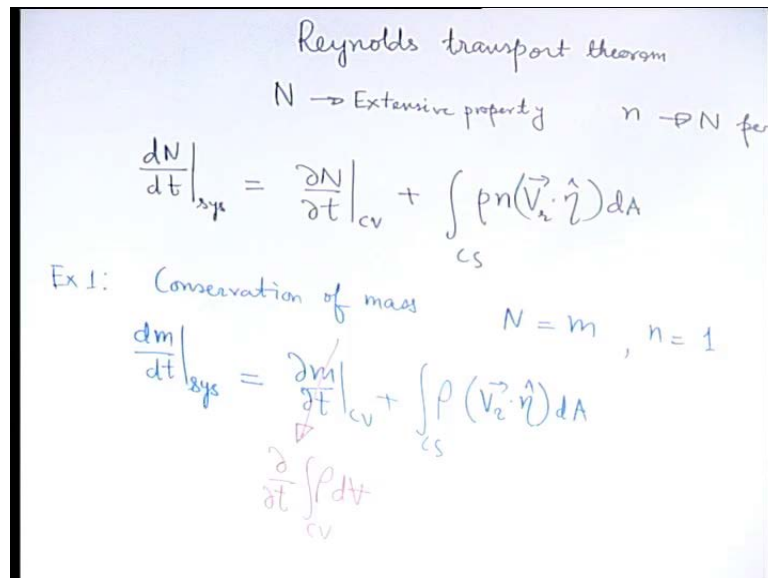 Reynolds transport theorem
N → Extensive property n → N per
dN/dt|sys = ∂N/∂t|CV + ∫CS ρn(V⃗r·η̂)dA
Ex 1: Conservation of mass N = m, n = 1
dm/dt|sys = ∂m/∂t|CV + ∫CS ρ(V⃗r·η̂)dA
∂/∂t ∫CV ρdV